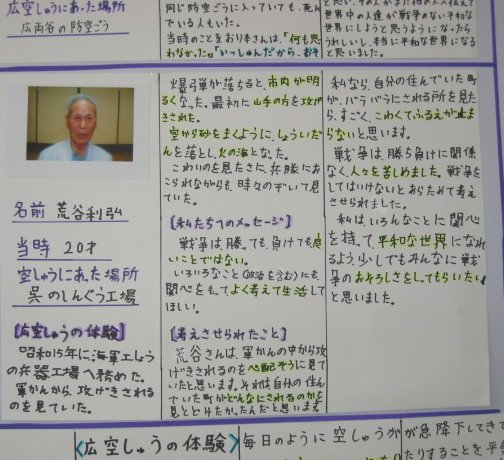 広空しゅうにあった場所
広両谷の防空ごう
同じ防空ごうに入っていても、死ん
でいる人もいた。
当時のことをおり本さんは、「何も思
わなかった。」「いっしゅんだから、おそ
世界中の人達が戦争のない平和な
世界にしようと思うようになったら
うれしいし、本当に平和な世界になる
と思いました。
名前 荒谷利弘
当時 20才
空しゅうにあった場所
呉のしんぐう工場
【広空しゅうの体験】
昭和15年に海軍工しょう
の兵器工場へ務めた。
軍かんから、攻げきされる
のを見ていた。
爆弾が落ちると、市内が明
るくなった。最初に山手の方を攻げ
きされた。
空から砂をまくように、しょういだ
んを落とし、火の海となった。
こわいのを見たさに、兵隊にお
こられながらも、時々のぞいて見
ていた。
【私たちへのメッセージ】
戦争は勝っても、負けても良
いことではない。
いろいろなこと(政治を含む)にも、
関心をもってよく考えて生活して
ほしい。
【考えさせられたこと】
荒谷さんは、軍かんの中から攻
げきされるのを心配そうに見てい
たと思います。それは自分の住ん
でいた町がどんなにされるのかを
見とどけたかったんだと思います。
私なら、自分の住んでいた町
が、バラバラにされる所を見た
ら、すごく、こわくてふるえが止ま
らないと思います。
戦争は、勝ち負けに関係
なく、人々を苦しめました。戦争を
してはいけないとあらためて考え
させられました。
私は、いろんなことに関心
を持って平和な世界になれ
るよう少しでもみんなに戦
争のおそろしさをしてもらいたい
と思いました。
〈広空しゅうの体験〉
毎日のように空しゅうが
が急降下してきて
たりすることを